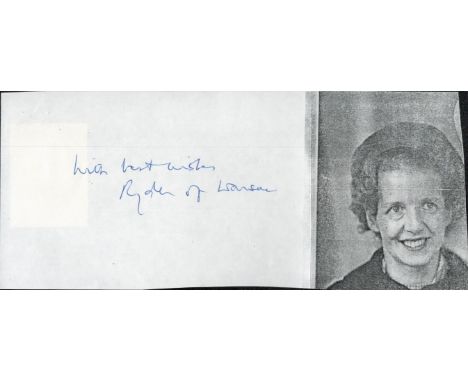 With best wishes
Ryder of Warsaw